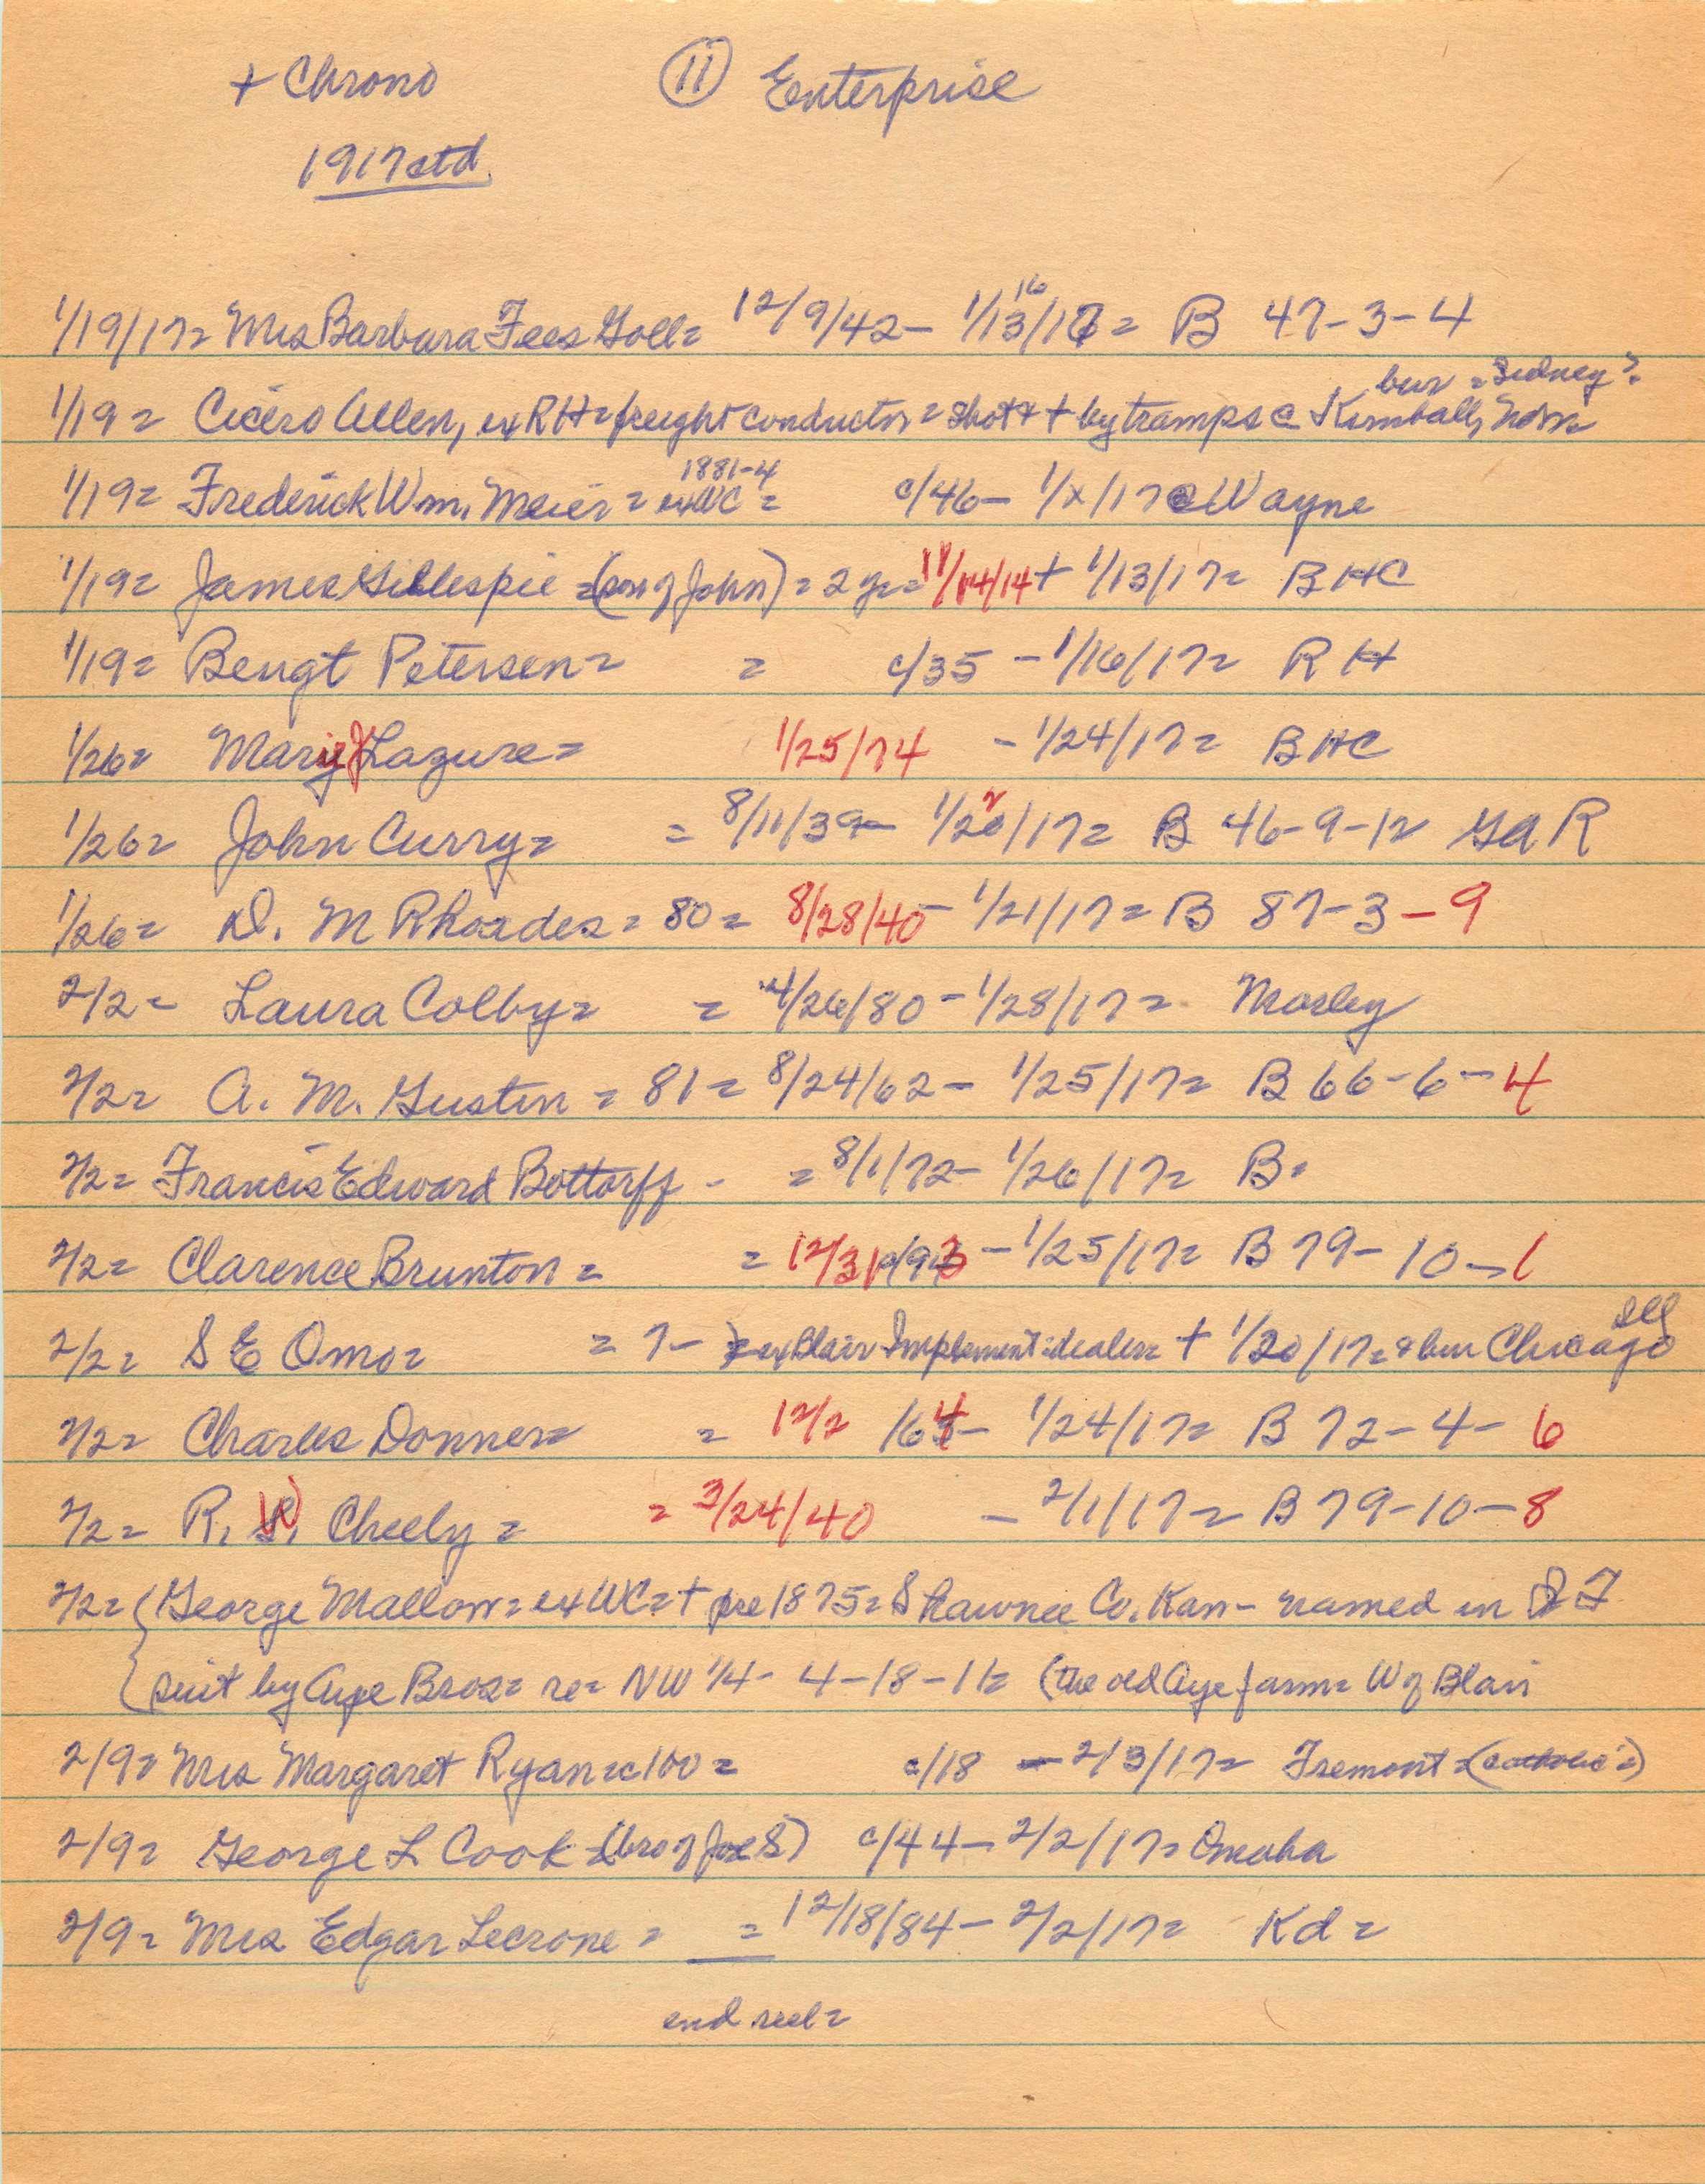 + Chrono (11) Enterprise
1917 ctd.
1/19/17= Mrs Barbara Fees Goll= 12/9/42- 1/13/17= B 47-3-4
16
bur = Sidney?=
1/19= Cicero Allen, ex RH= freight conductor= shot + + by tramps @ Kimball,
1881-4
1/19= Frederick Wm. Meier= ex WC= c/46- 1/x/17 @ Wayne
1/19= James Gillespie =(son of John)= 2 yr= 11/14/14 + 1/13/17= BHC
1/19= Bengt Petersen= = c/35 - 1/16/17= RH
1/26= Marie J Lazure= 1/25/74 - 1/24/17= BHC
1/26= John Curry= = 8/11/39- 1/22/17= B 46-9-12 GAR
1/26= D. M Rhoades= 80= 8/28/40- 1/21/17= B 87-3-9
2/2= Laura Colby= = 4/26/80- 1/28/17= Mosley
2/2= A. M. Gustin= 81= 8/24/62- 1/25/17= B 66-6-4
2/2= Francis Edward Bottorff - = 8/1/72- 1/26/17= B=
2/2= Clarence Brunton= = 12/31/93 - 1/25/17= B 79-10-1
2/2= S E Omo= = 7- ex Blair Implement dealer= + 1/20/17= & bur Chicago
2/2= Charles Donner= = 12/2 /64- 1/24/17= B 72-4-6
2/2= R. W. Cheely= = 3/24/40 - 2/1/17= B 79-10-8
2/2= { George Mallow= ex WC= + pre 1875= Shawnee Co. Kan- named in
{ suit by Aye Bros= re= NW 1/4- 4-18-11= (the old Aye farm= W of Blair
2/9= Mrs Margaret Ryan= c100= c/18 - 2/3/17= Fremont=(catholic=)
2/9= George L Cook =(bro of Joe S) c/44- 2/2/17= Omaha
2/9= Mrs Edgar Lecrone= = 12/18/84- 2/2/17= Kd=
end reel=